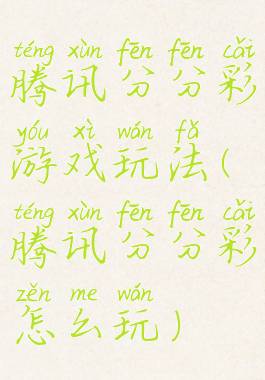 téng xùn fēn fēn cǎi
腾讯分分彩
yóu xì wán fǎ
游戏玩法(
téng xùn fēn fēn cǎi
腾讯分分彩
zěn me wán
怎么玩)